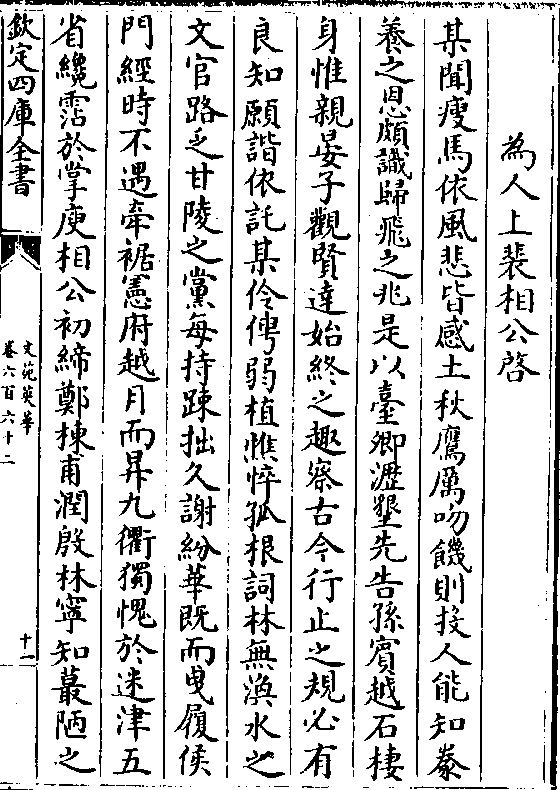 為人上裴相公啓
某聞瘦馬依風悲皆感土秋鷹厲吻饑則投人能知豢
養之恩頗識歸飛之兆是以臺卿瀝墾先告孫賓越石棲
身惟親晏子觀賢達始終之趣察古今行止之規必有
良知願諧依託某伶俜弱植憔悴孤根詞林無渙水之
文官路乏甘陵之黨每持踈拙久謝紛華既而曵履侯
門經時不遇牽裾憲府越月而昇九衢獨愧於迷津五
省纔霑於掌庾相公初締鄭棟甫潤殷林寧知蕞陋之
欽定四庫全書
文苑英華
卷六百六十二
十一